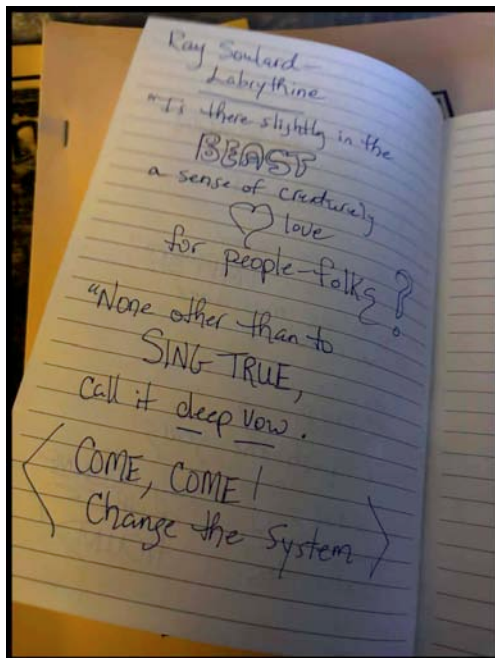 Ray Soulard–
Labrythine
"Is there slightly in the
BEAST
a sense of creaturely
love
for people-folks?
"None other than to
SING TRUE,
call it deep vow.
COME, COME!
Change the System